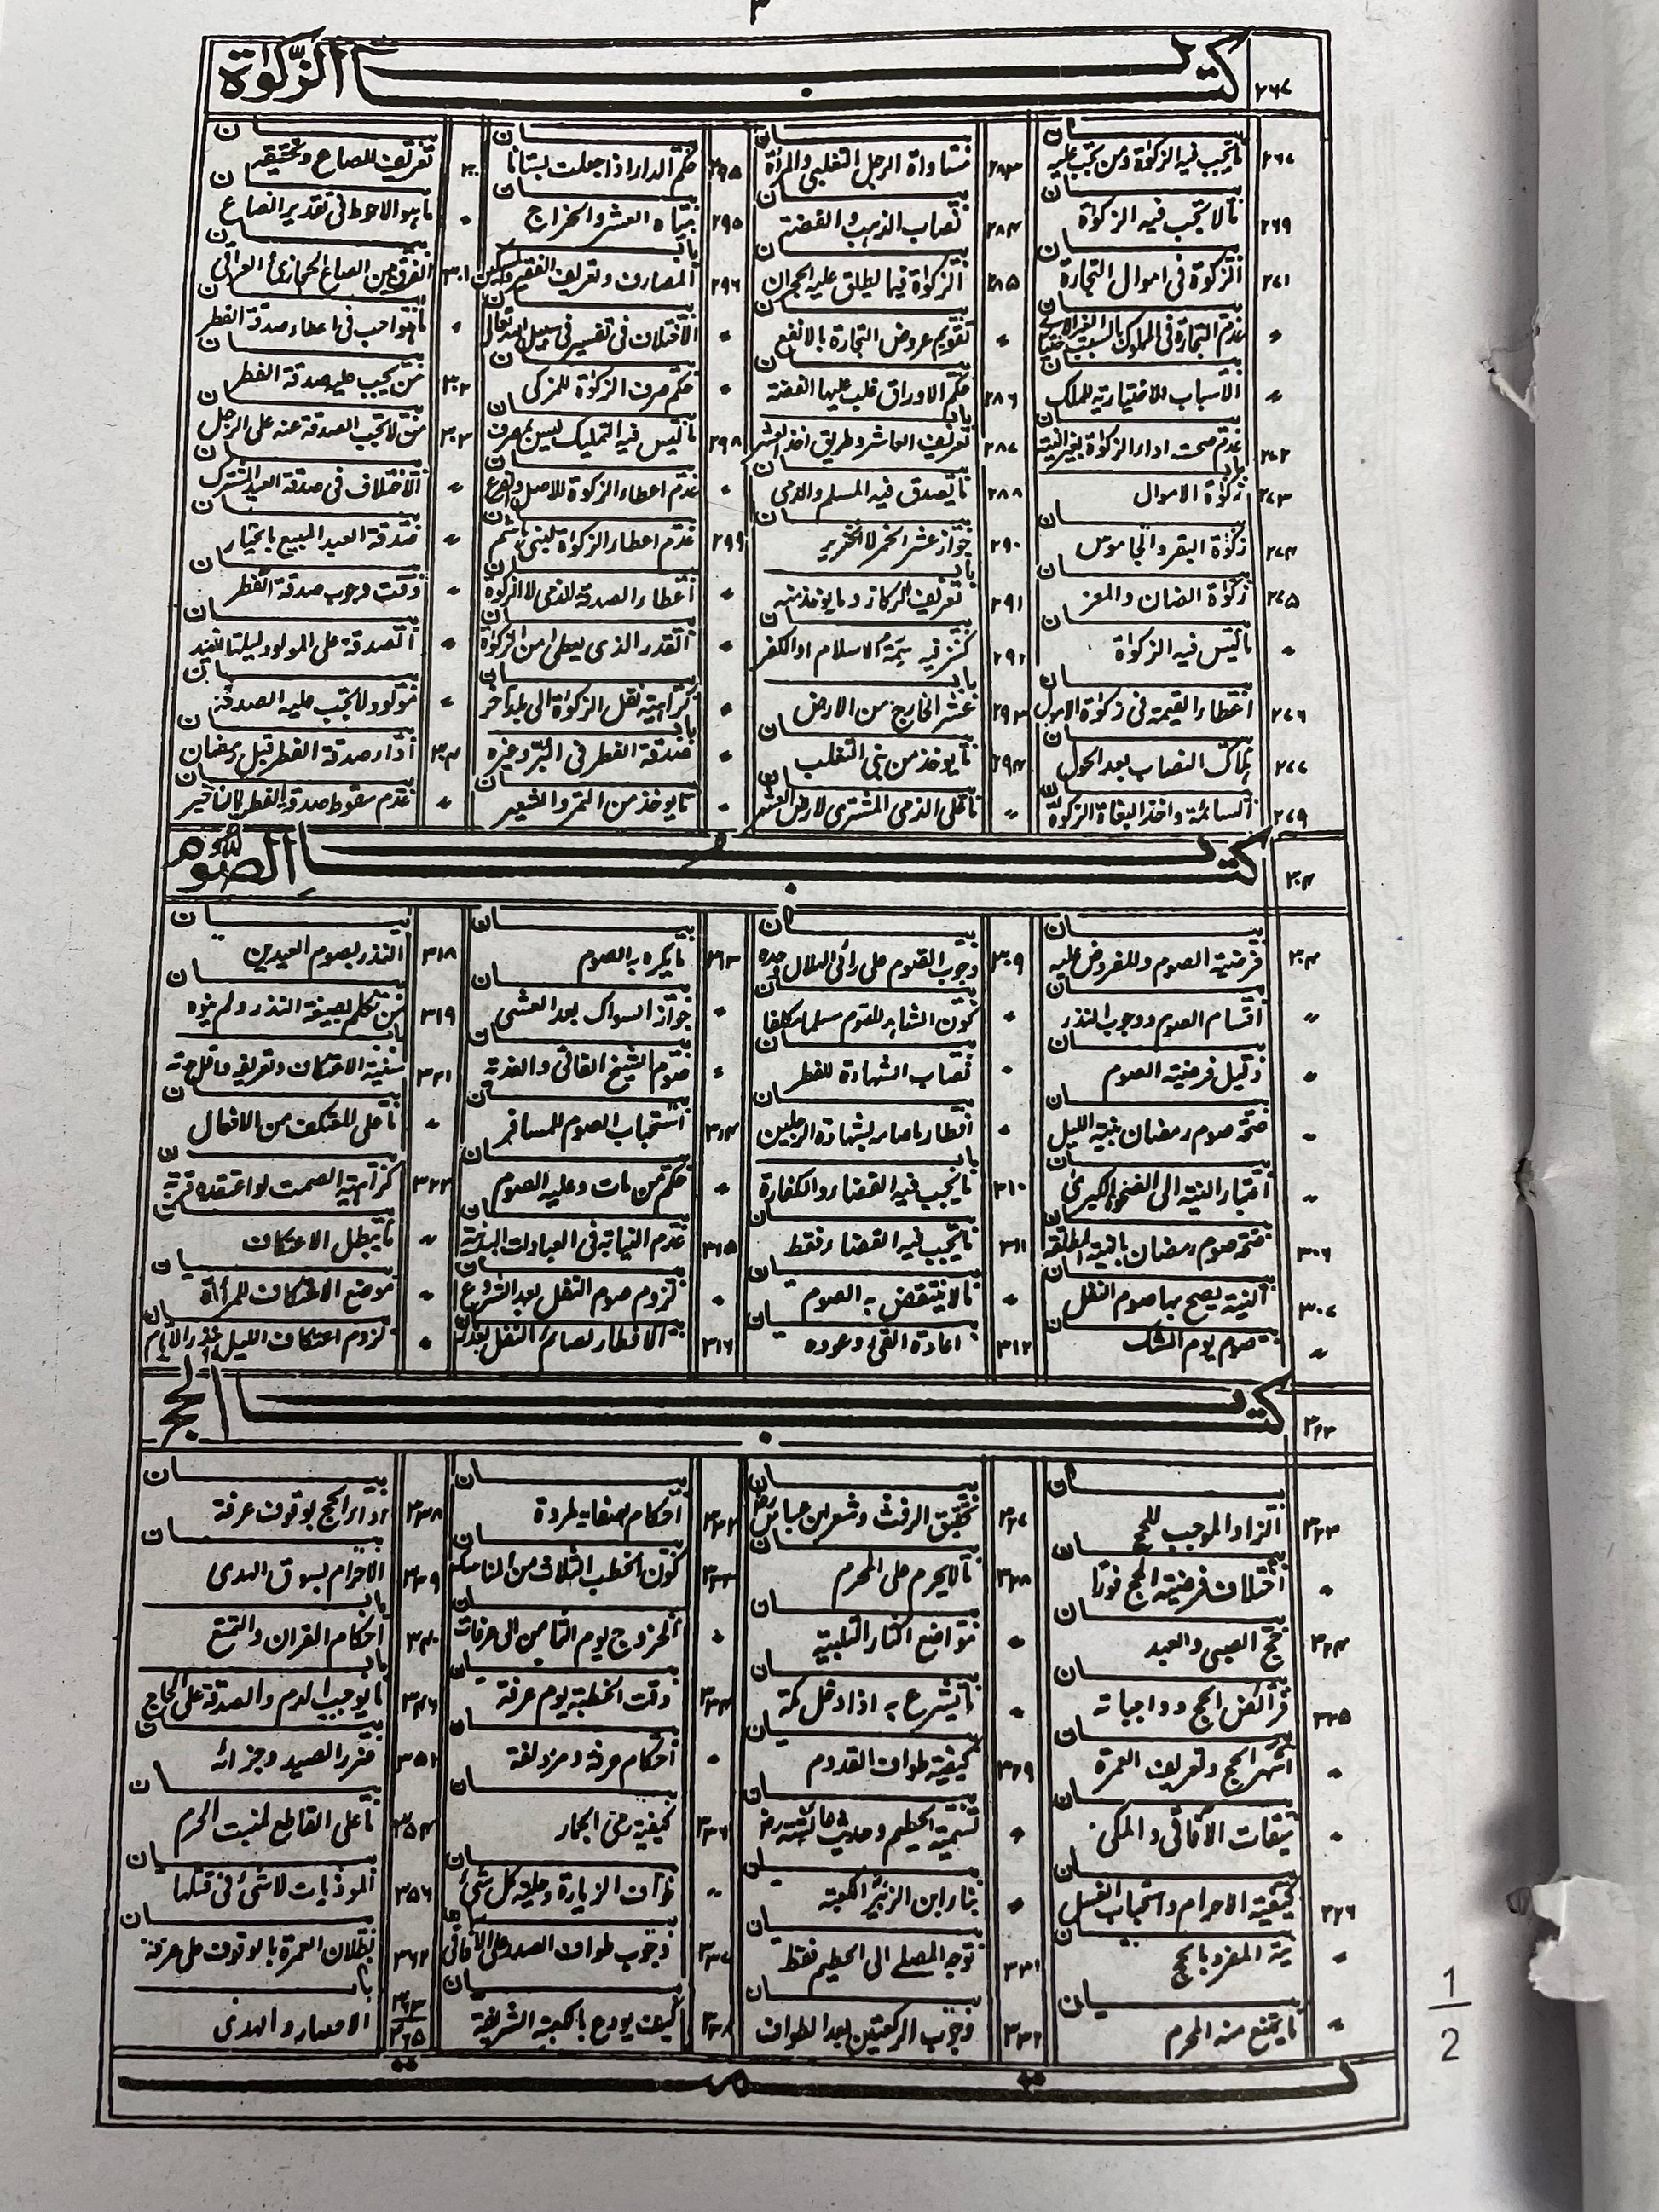 كتاب الزكوٰة ٢٦٧
بيان
٢٦٧ مايجب فيه الزكوٰة ومن تجب عليه
بيان
٢٦٩ مالا تجب فيه الزكوٰة
بيان
٢٧١ الزكوٰة فى اموال التجارة
بيان
〃 عدم التجارة فى المملوك
بيان
〃 الاسباب الاختيارية للملك
بيان
٢٧٢ عدم صحت اداء الزكوٰة بغير النية
باب
٢٧٣ زكوٰة الاموال
بيان
٢٧٤ زكوٰة البقر والجاموس
بيان
٢٧٥ زكوٰة الضان والمعز
بيان
〃 ماليس فيه الزكوٰة
بيان
٢٧٦ اعطاء القيمة فى زكوٰة الاموال
بيان
٢٧٧ هلاك النصاب بعد الحول
بيان
٢٧٩ السائمة واخذ البغاة الزكوٰة
بيان
٢٨٣ مساواة الرجل التغلبى والمرأة
بيان
٢٨٤ نصاب الذهب والفضة
بيان
٢٨٥ الزكوٰة فيما يطلق عليه الحجران
بيان
〃 تقويم عروض التجارة بالانفع
بيان
٢٨٦ حكم الاوراق غلب عليها الفضة
باب
٢٨٧ تعريف العاشر وطريق اخذ العشر
بيان
٢٨٨ مايصدق فيه المسلم والذمى
بيان
٢٩٠ جواز عشر الخمر لا الخنزير
باب
٢٩١ تعريف الركاز وما يوخذ منه
بيان
٢٩٢ كنز فيه سمة الاسلام او الكفر
باب
٢٩٣ عشر الخارج من الارض
بيان
٢٩٤ مايوخذ من بنى التغلب
بيان
〃 ماعلى الذمى المشترى لارض العشر
بيان
٢٩٥ حكم الدار اذا جعلت بستانا
بيان
٢٩٥ مياه العشر والخراج
باب
٢٩٦ المصارف وتعريف الفقير والمسكين
بيان
〃 الاختلاف فى تفسير فى سبيل الله تعالى
بيان
〃 حكم صرف الزكوٰة للمزكى
بيان
٢٩٨ ماليس فيه التمليك ليس بمصرف
بيان
〃 عدم اعطاء الزكوٰة للاصل والفرع
بيان
٢٩٩ عدم اعطاء الزكوٰة لبنى هاشم
بيان
〃 اعطاء الصدقة للذمى لا الزكوٰة
بيان
〃 القدر الذى يعطى من الزكوٰة
بيان
〃 كراهية نقل الزكوٰة الى بلد آخر
باب
〃 صدقة الفطر فى البر وغيره
بيان
〃 مايوخذ من التمر والشعير
بيان
٣٠٠ تعريف الصاع وتحقيقه
بيان
〃 ماهو الاحوط فى تقدير الصاع
بيان
٣٠١ الفرق بين الصاع الحجازى والعراقى
بيان
〃 ماهو احب فى اعطاء صدقة الفطر
بيان
٣٠٢ من يجب عليه صدقة الفطر
بيان
٣٠٣ من لا تجب الصدقة عنه على الرجل
بيان
〃 الاختلاف فى صدقة العبد المشترك
بيان
〃 صدقة العبد المبيع بالخيار
بيان
〃 وقت وجوب صدقة الفطر
بيان
〃 الصدقة على المولود ليلتا العيد
بيان
〃 مولود لا تجب عليه الصدقة
بيان
٣٠٤ اداء صدقة الفطر قبل رمضان
بيان
〃 عدم سقوط صدقة الفطر بالتاخير
كتاب الصوم ٣٠٤
بيان
٣٠٤ فرضية الصوم والمفروض عليه
بيان
〃 اقسام الصوم ووجوب النذر
بيان
〃 دليل فرضية الصوم
بيان
〃 صحة صوم رمضان بنية الليل
بيان
〃 اعتبار النية الى الضحوة الكبرى
بيان
٣٠٦ صحة صوم رمضان بالنية المطلقة
بيان
٣٠٧ النية يصح بها صوم النفل
بيان
〃 صوم يوم الشك
بيان
٣٠٩ وجوب الصوم على رائى الهلال وحده
بيان
〃 كون الشاهد للصوم مسلما مكلفا
بيان
〃 نصاب الشهادة للفطر
بيان
〃 افطار ماصامه بشهادة الرجلين
باب
٣١٠ مايجب فيه القضاء والكفارة
بيان
٣١١ مايجب فيه القضاء فقط
بيان
〃 مالا ينتقض به الصوم
بيان
٣١٢ اعادة القئ وعوده
بيان
٣١٣ مايكره به الصوم
بيان
〃 جواز السواك بعد العشى
بيان
〃 صوم الشيخ الفانى والفدية
بيان
٣١٤ استحباب الصوم للمسافر
بيان
〃 حكم من مات وعليه الصوم
بيان
٣١٥ عدم النيابة فى العبادات البدنية
بيان
〃 لزوم صوم النفل بعد الشروع
بيان
٣١٦ الافطار لصائم النفل بعذر
بيان
٣١٨ النذر بصوم العيدين
بيان
٣١٩ من تكلم بصيغة النذر ولم ينوه
باب
٣٢١ سنية الاعتكاف وتعريفه واقل مدته
بيان
〃 ماعلى المعتكف من الافعال
بيان
٣٢٢ كراهية الصمت لو اعتقده قربة
بيان
〃 مايبطل الاعتكاف
بيان
〃 موضع الاعتكاف للمرأة
بيان
〃 لزوم اعتكاف الليل بنذر الايام
كتاب الحج ٣٢٣
بيان
٣٢٣ الزاد الموجب للحج
بيان
〃 اختلاف فرضية الحج فورًا
بيان
٣٢٤ حج الصبى والعبد
بيان
٣٢٥ فرائض الحج وواجباته
بيان
〃 اشهر الحج وتعريف العمرة
بيان
〃 ميقات الآفاقى والمكى
بيان
٣٢٦ كيفية الاحرام واستحباب الغسل
بيان
〃 نية المفرد بالحج
بيان
〃 مايمتنع منه المحرم
بيان
٣٢٧ تحقيق الرفث وشعر ابن عباس رض
بيان
٣٢٨ مالا يحرم على المحرم
بيان
〃 مواضع اكثار التلبية
بيان
〃 مايشرع به اذا دخل مكة
بيان
٣٢٩ كيفية طواف القدوم
بيان
〃 تسمية الحطيم وحديث عائشة رض
بيان
〃 بناء ابن الزبير الكعبة
بيان
٣٣١ توجه المصلے الى الحطيم فقط
بيان
٣٣٢ وجوب الركعتين بعد الطواف
بيان
٣٣٢ احكام صفا ومروة
بيان
٣٣٣ كون الخطب الثلاث من المناسك
بيان
〃 الخروج يوم الثامن الى عرفات
بيان
٣٣٤ وقت الخطبة يوم عرفة
بيان
〃 احكام عرفة ومزدلفة
بيان
٣٣٦ كيفية رمى الجمار
بيان
〃 طواف الزيارة وحلية كل شئ
بيان
٣٣٧ وجوب طواف الصدر على الآفاقى
بيان
٣٣٨ كيف يودع بالكعبة الشريفة
بيان
٣٣٨ اداء الحج بوقوف عرفة
بيان
٣٣٩ الاحرام بسوق الهدى
باب
٣٤٠ احكام القران والتمتع
باب
٣٤٦ مايوجب الدم والصدقة على الحاج
بيان
٣٥٢ ضرر الصيد وجزائه
بيان
٣٥٤ ماعلى القاطع لمنبت الحرم
بيان
٣٥٦ الموذيات لاشئ فى قتلها
بيان
٣٦٢ بطلان العمرة بالوقوف على عرفة
باب
٣٦٣ ٣٦٥ الاحصار والهدى
1
2